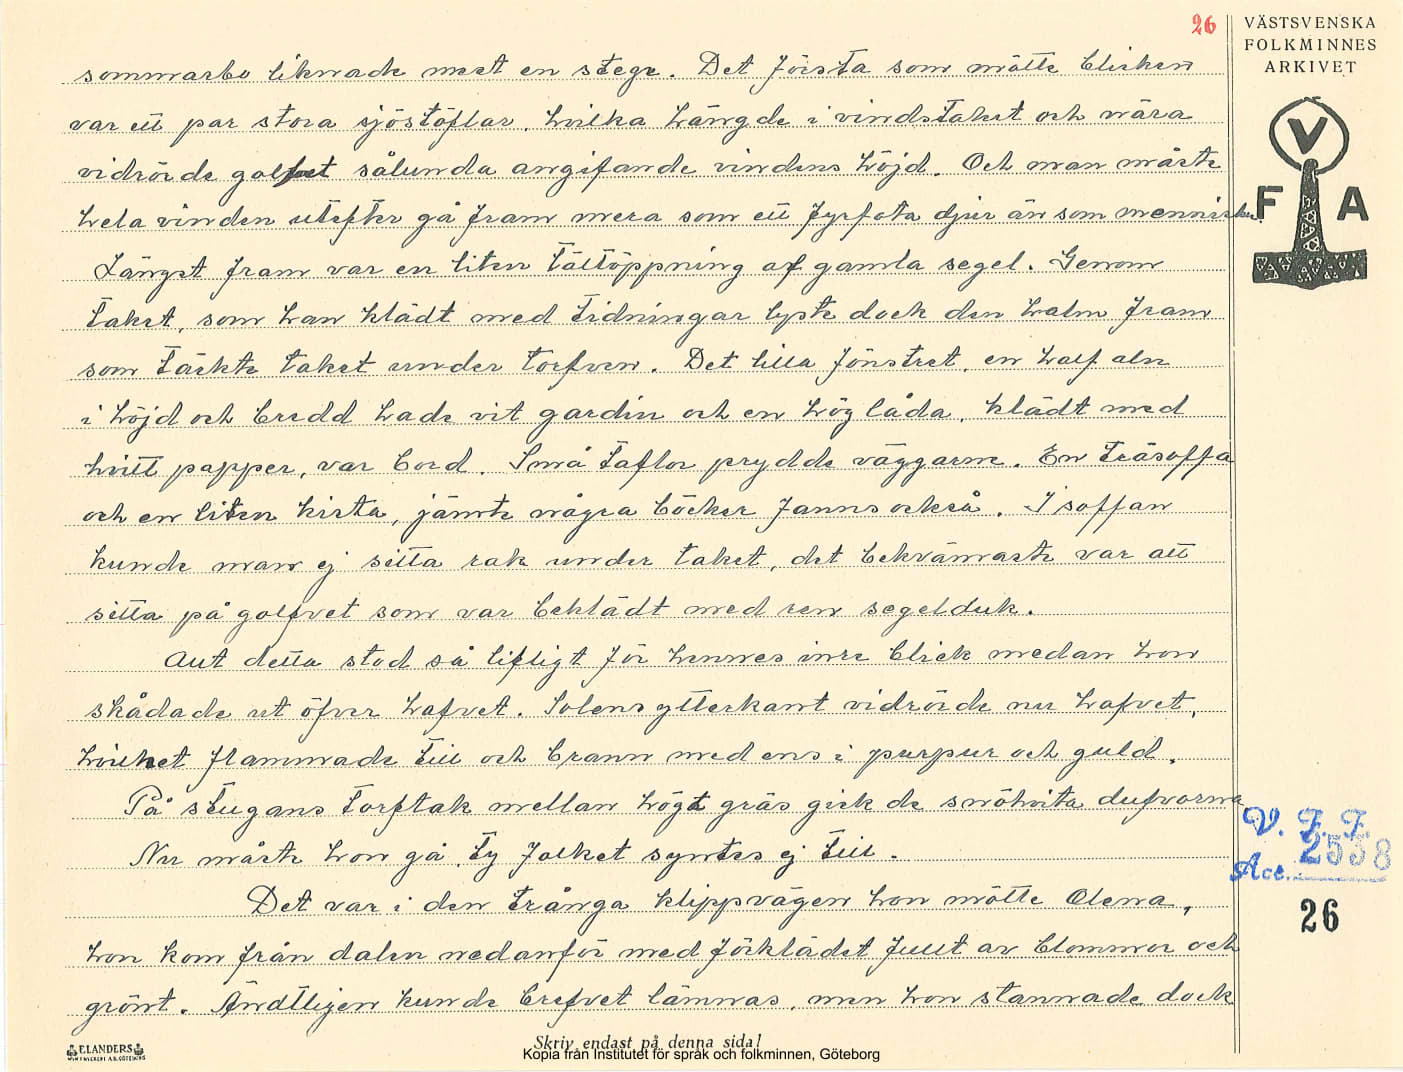 26
VÄSTSVENSKA
FOLKMINNES
ARKIVET
V
F A
sommarbo liknade mest en stege. Det första som mötte blicken
var ett par stora sjöstöflar, hvilka hängde i vindstaket och nära
vidrörde golfvet sålunda angifande vindens höjd. Och man måste
hela vinden utefter gå fram mera som ett fyrfota djur än som menniska.
Längst fram var en liten tältöppning af gamla segel. Genom
taket, som han klädt med tidningar lyste dock den halm fram
som täckte taket under torfven. Det lilla fönstret, en half aln
i höjd och bredd hade vit gardin och en hög låda, klädt med
hvitt papper, var bord. Små taflor prydde väggarne. En träsoffa
och en liten kista, jämte några böcker fanns också. I soffan
kunde man ej sitta rak under taket, det bekvämaste var att
sitta på golfvet som var beklädt med ren segelduk.
Allt detta stod så lifligt för hennes inre blick medan hon
skådade ut öfver hafvet. Solens ytterkant vidrörde nu hafvet,
hvilket flammade till och brann med ens i purpur och guld.
På stugans torftak mellan högt gräs gick de snöhvita dufvorna
Nu måste hon gå, ty folket syntes ej till.
Det var i den trånga klippvägen hon mötte Olena,
hon kom från dalen nedanför med förklädet fullt av blommor och
grönt. Ändtligen kunde brefvet lämnas, men hon stannade dock
V. F. F.
Acc. 2538
26
E LANDERS
Skriv endast på denna sida!
Kopia från Institutet för språk och folkminnen, Göteborg